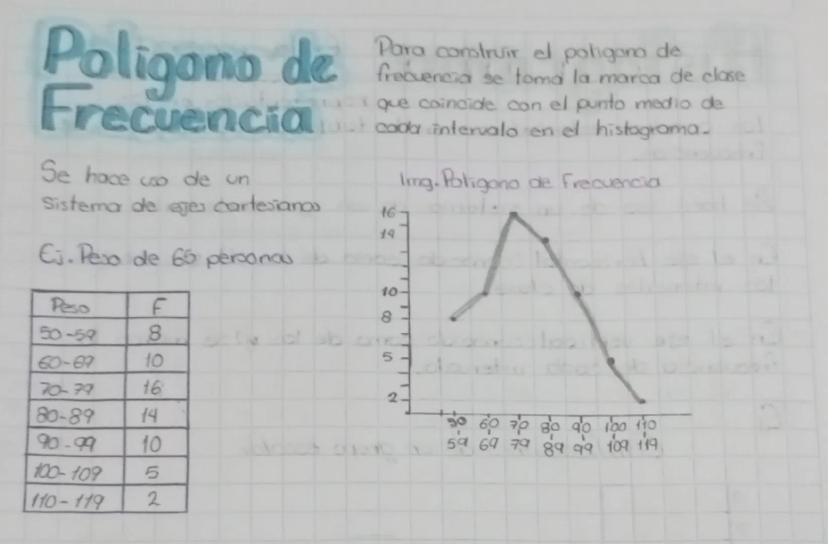 Poligono de
Frecuencia
Para construir el poligono de
frecuencia se toma la marca de clase
que coincide con el punto medio de
cada intervalo en el histograma.
Se hace uso de un
sistema de ejes cartesianos
Ej. Peso de 65 personas
Peso F
50-59 8
60-69 10
70-79 16
80-89 14
90-99 10
100-109 5
110-119 2
Img. Poligono de Frecuencia
16
14
10
8
5
2
50 60 70 80 90 100 110
59 69 79 89 99 109 119